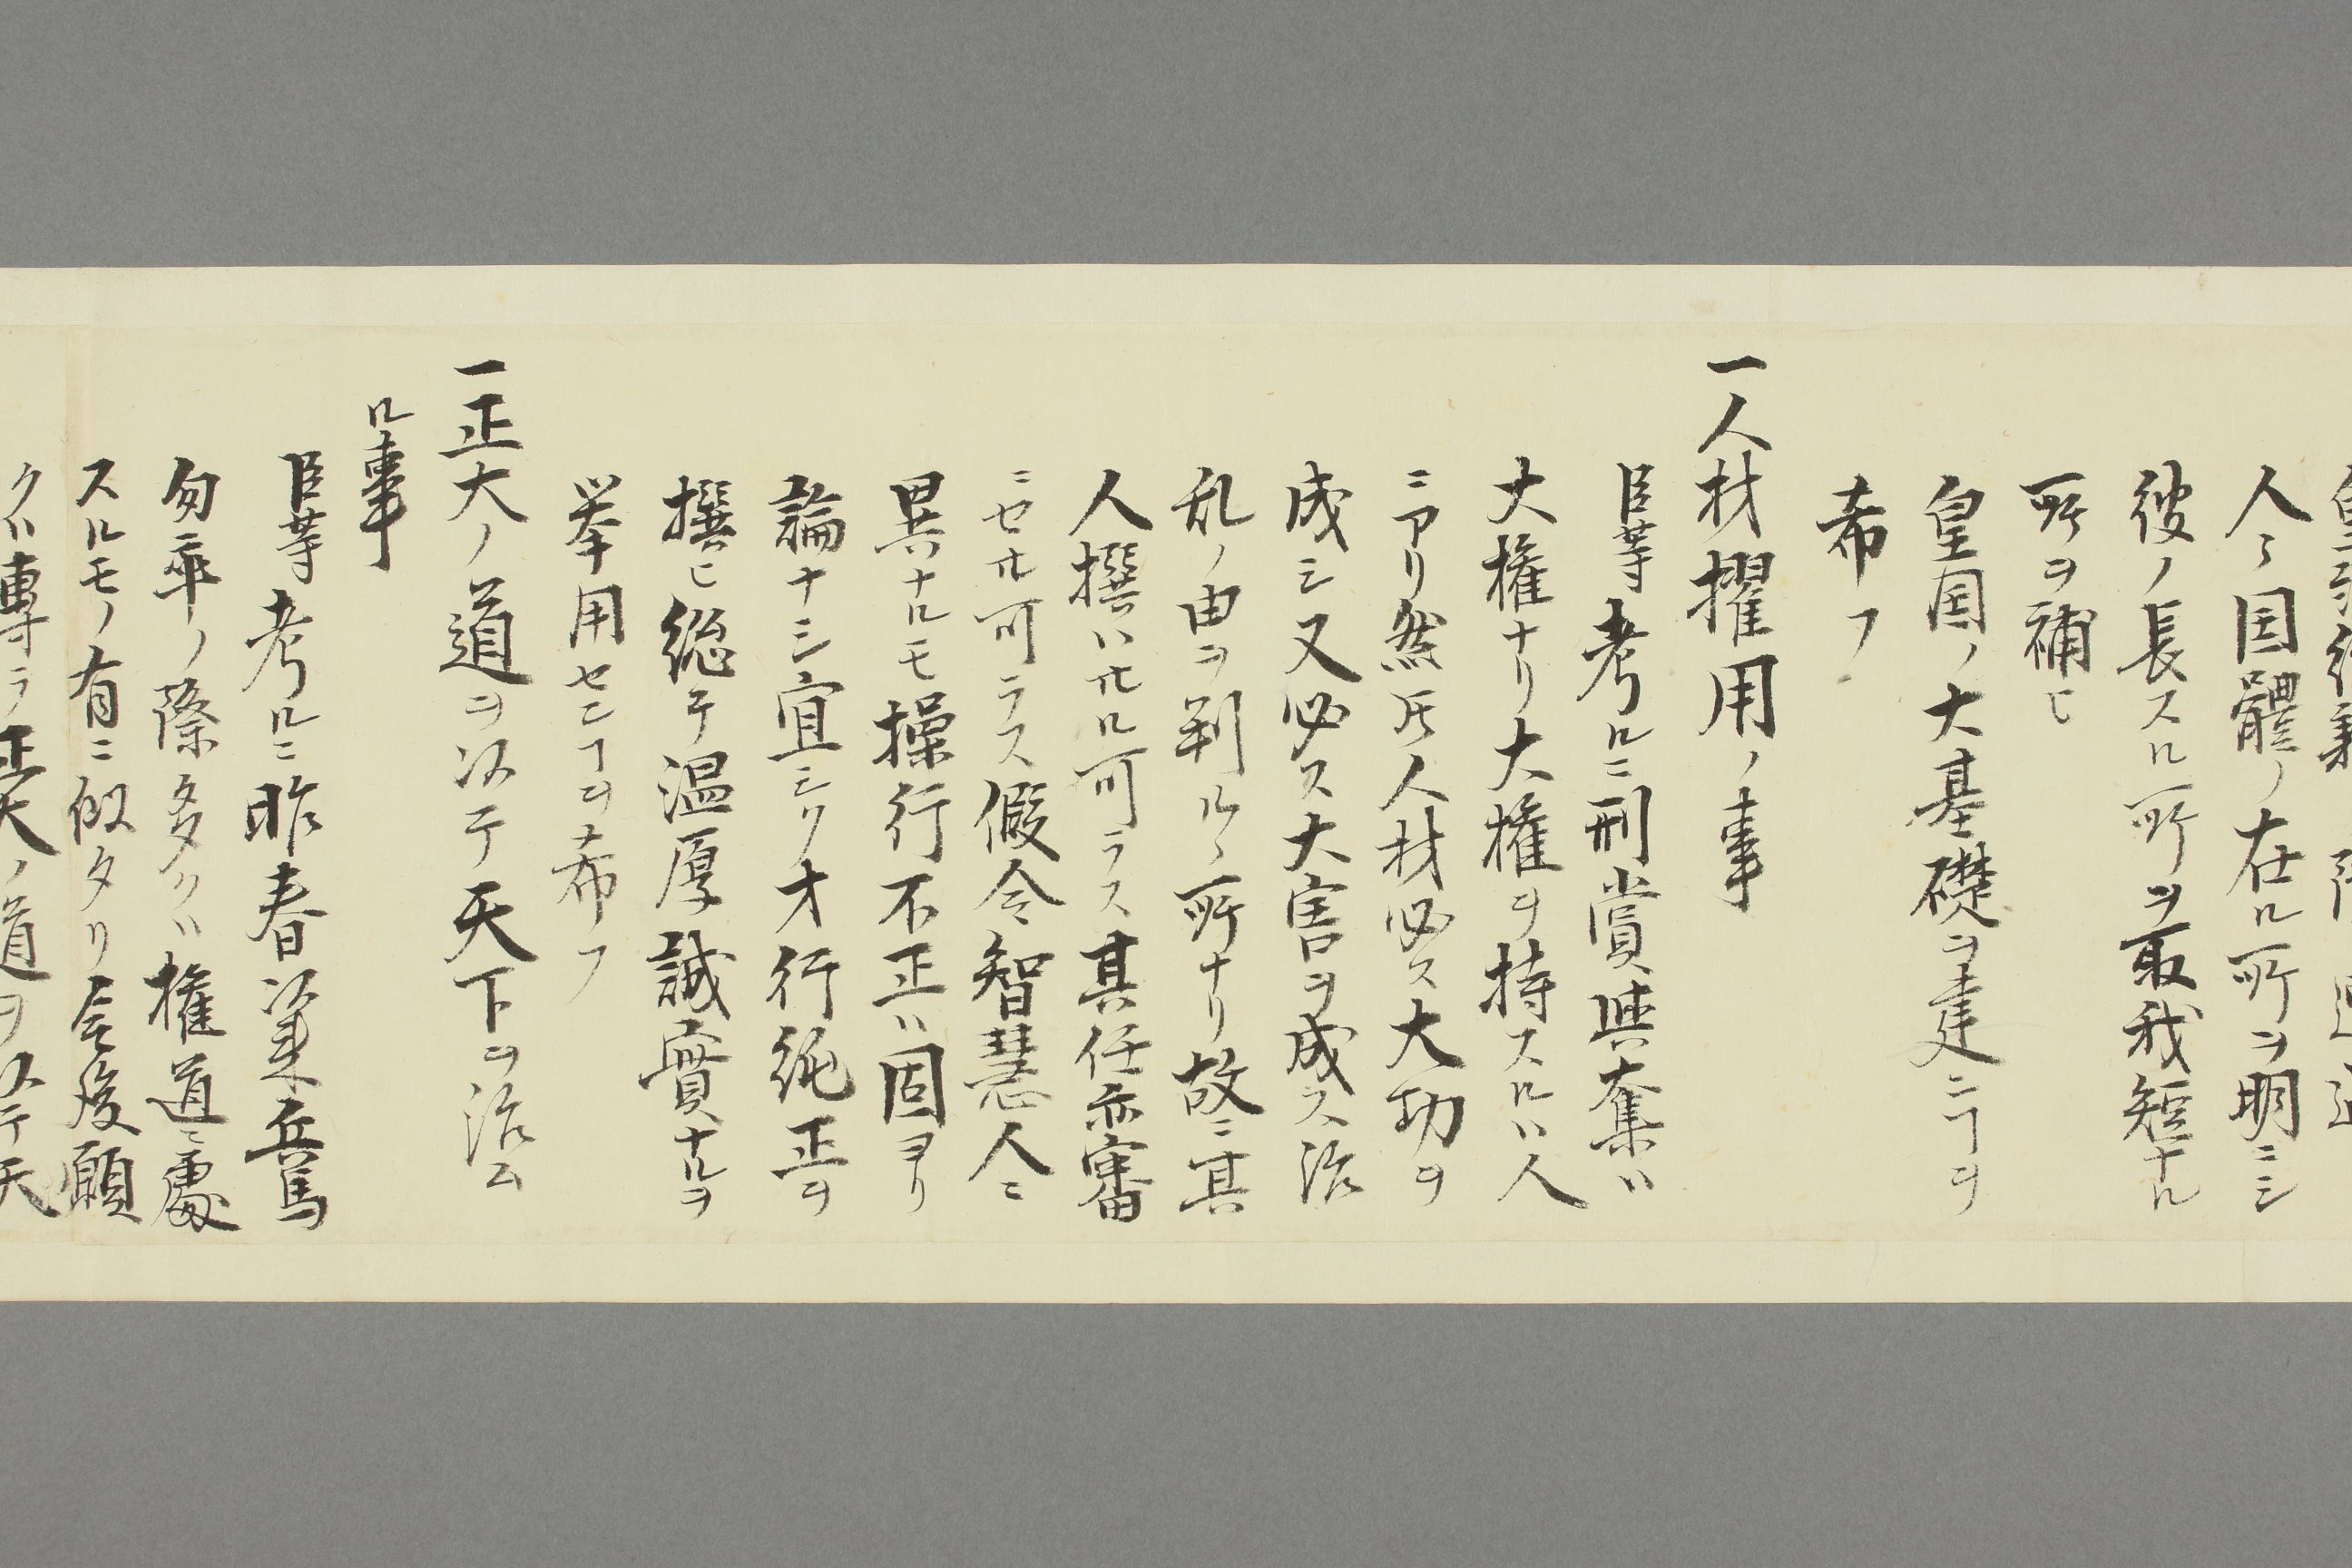 人々因體ノ在ル所ヲ明ニシ
彼ノ長スル所ヲ取我短ナル
所ヲ補ヒ
皇国ノ大基礎ヲ建ンヿヲ
希フ
一人材擢用ノ事
臣等考ルニ刑賞與奪ハ
大権ナリ大権ヲ持スルハ人
ニアリ然𪜈人材必ス大功ヲ
成シ又必ス大害ヲ成ス治
乱ノ由ヲ判ルヽ所ナリ故ニ其
人撰ハサル可ラス其任亦審
ニセサル可ラス假令智慧人ニ
異ナルモ操行不正ハ固ヨリ
論ナシ宜シク才行純正ヲ
撰ヒ総テ温厚誠實ナルヲ
挙用センヿヲ希フ
一正大ノ道ヲ以テ天下ヲ治ム
ル事
臣等考ルニ昨春以来兵馬
匆卒ノ際多クハ権道ニ處
スルモノ有ニ似タリ今後願
クハ專ラ正大ノ道ヲ以テ天